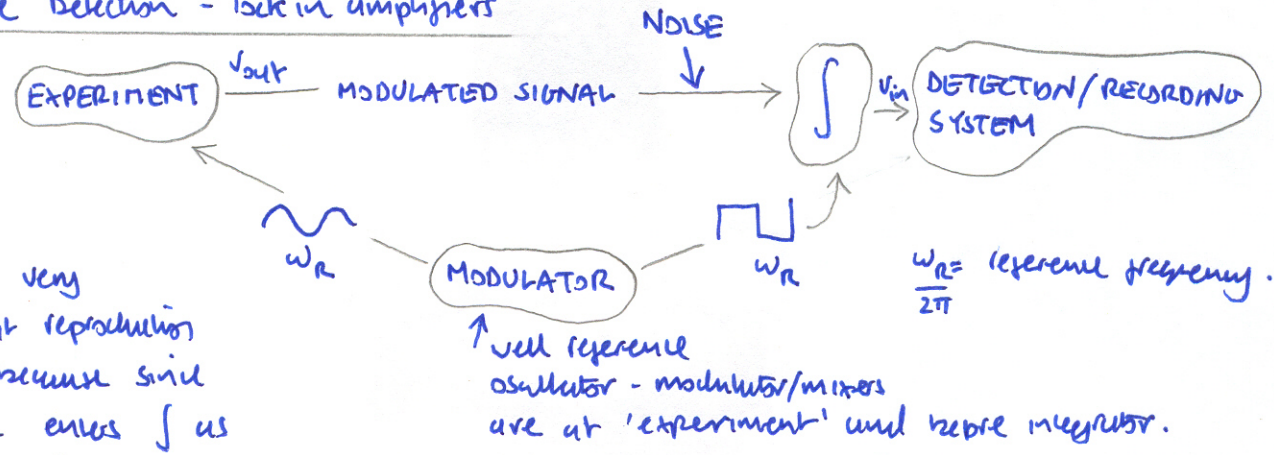 Detection - lock in amplifiers
NOISE
EXPERIMENT Vout MODULATED SIGNAL ∫ Vin DETECTION/RECORDING
SYSTEM
ωR MODULATOR ωR ωR/2π = reference frequency.
very
reproduction
because since
enters ∫ as
well reference
oscillator - modulator/mixers
are at 'experiment' and before integrator.